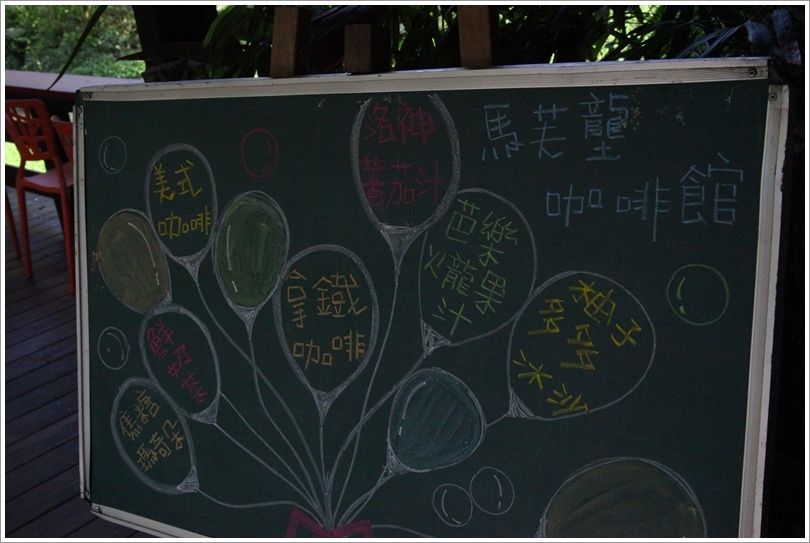 馬芙蘢
咖啡館
洛神
蕃茄汁
美式
咖啡
芭樂
火龍果
汁
拿鐵
咖啡
柚子
多多
冰沙
鮮奶茶
焦糖
瑪奇朵